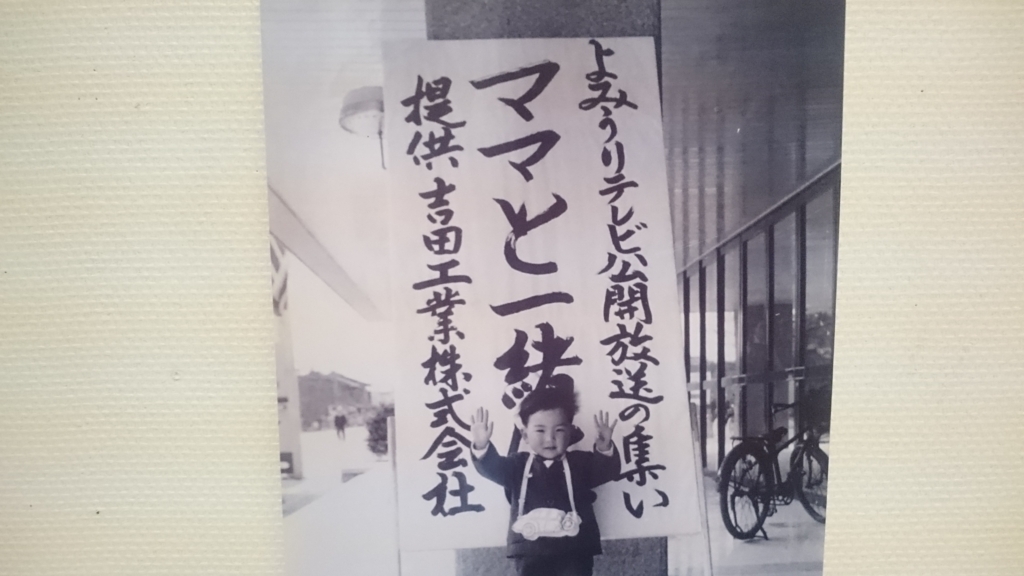 よみうりテレビ公開放送の集い
ママと一緒
提供吉田工業株式会社